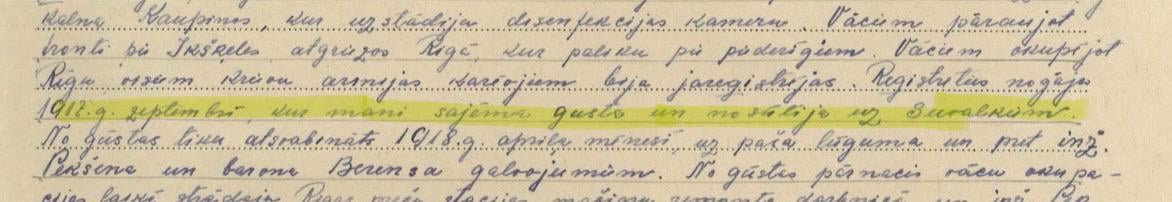 kalna Kaupinos, kur uzstādīja disenfekcijas kameru. Vāciem pāraujot
fronti pie Ikšķeles, atgriezos Rīgā, kur paliku pie piederīgiem. Vāciem okupējot
Rīgu visiem krievu armijas kareivjiem bija jareģistrējas. Reģistrēties nogāju
1917.g. septembrī, kur mani saņēma gūstā un nosūtīja uz Suvalkiem.
No gūstas tiku atsvabināts 1918.g. aprīļa mēnesī, uz paša lūguma un pret inž.
Pēkšēna un barona Berensa galvojumiem. No gūstas pārnācis vācu okupā-
cijas laikā strādāju Rīgas